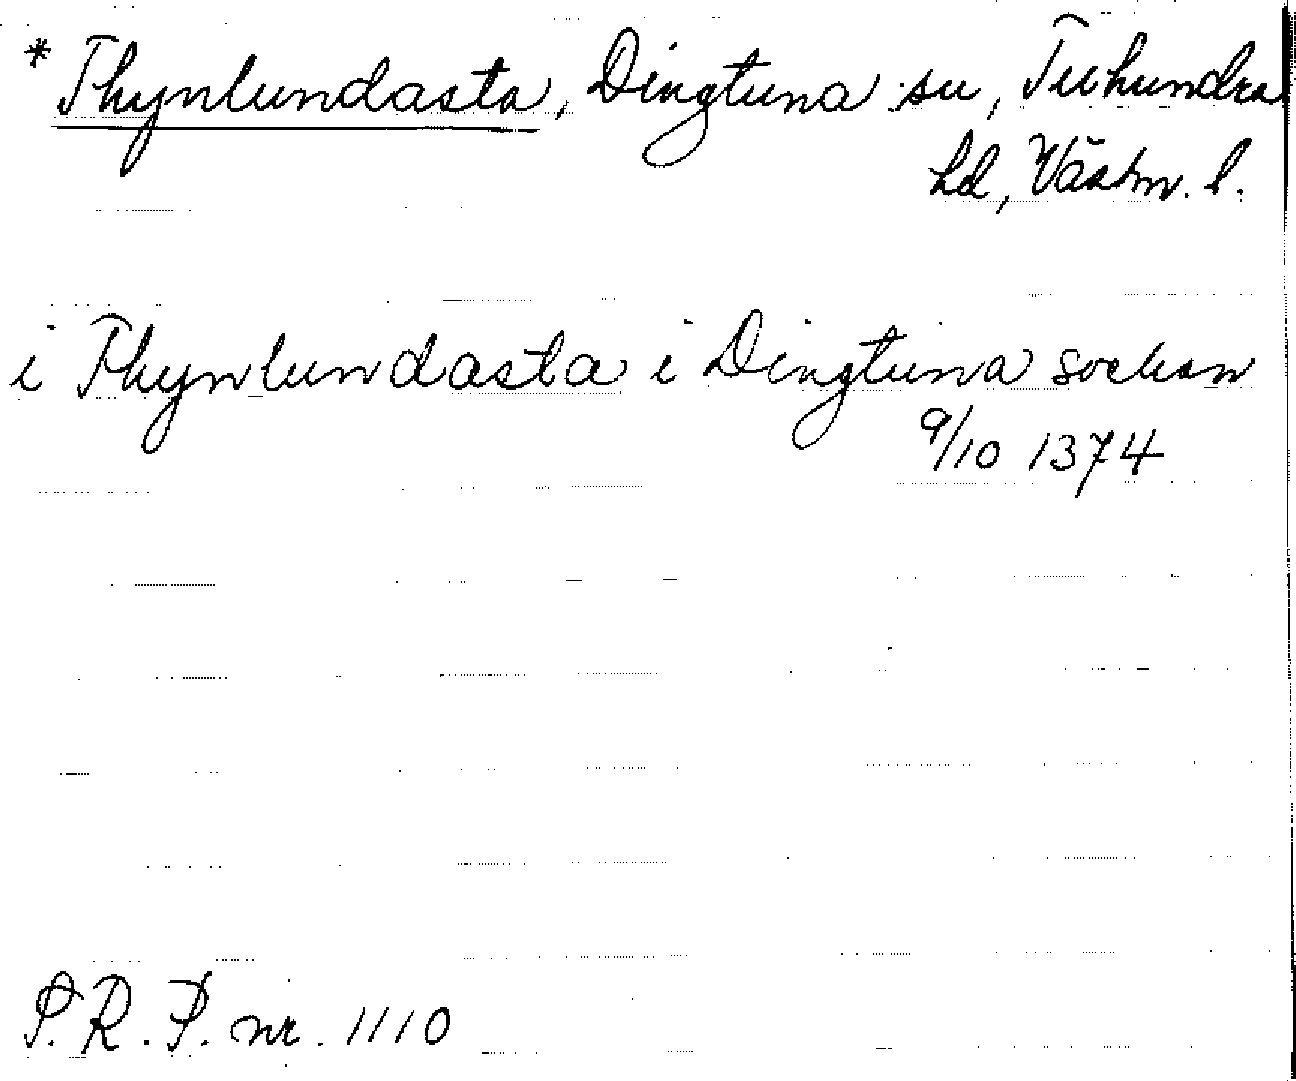 * Thynlundasta, Dingtuna sn, Tuhundra
hd, Västm. l.
i Thynlundasta i Dingtuna sockan
9/10 1374
S.R.P. nr. 1110